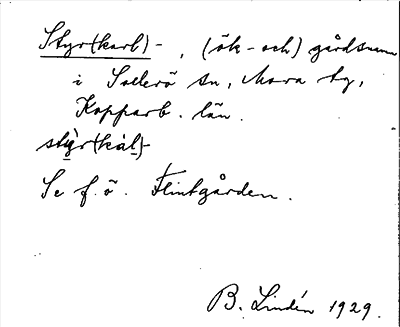 Styr(karl)-, (ök- och) gårdsnamn
i Sollerö sn, Mora tg,
Kopparb. län.
styr(kal)-
Se f. ö. Flintgården.
B. Lindén 1929.